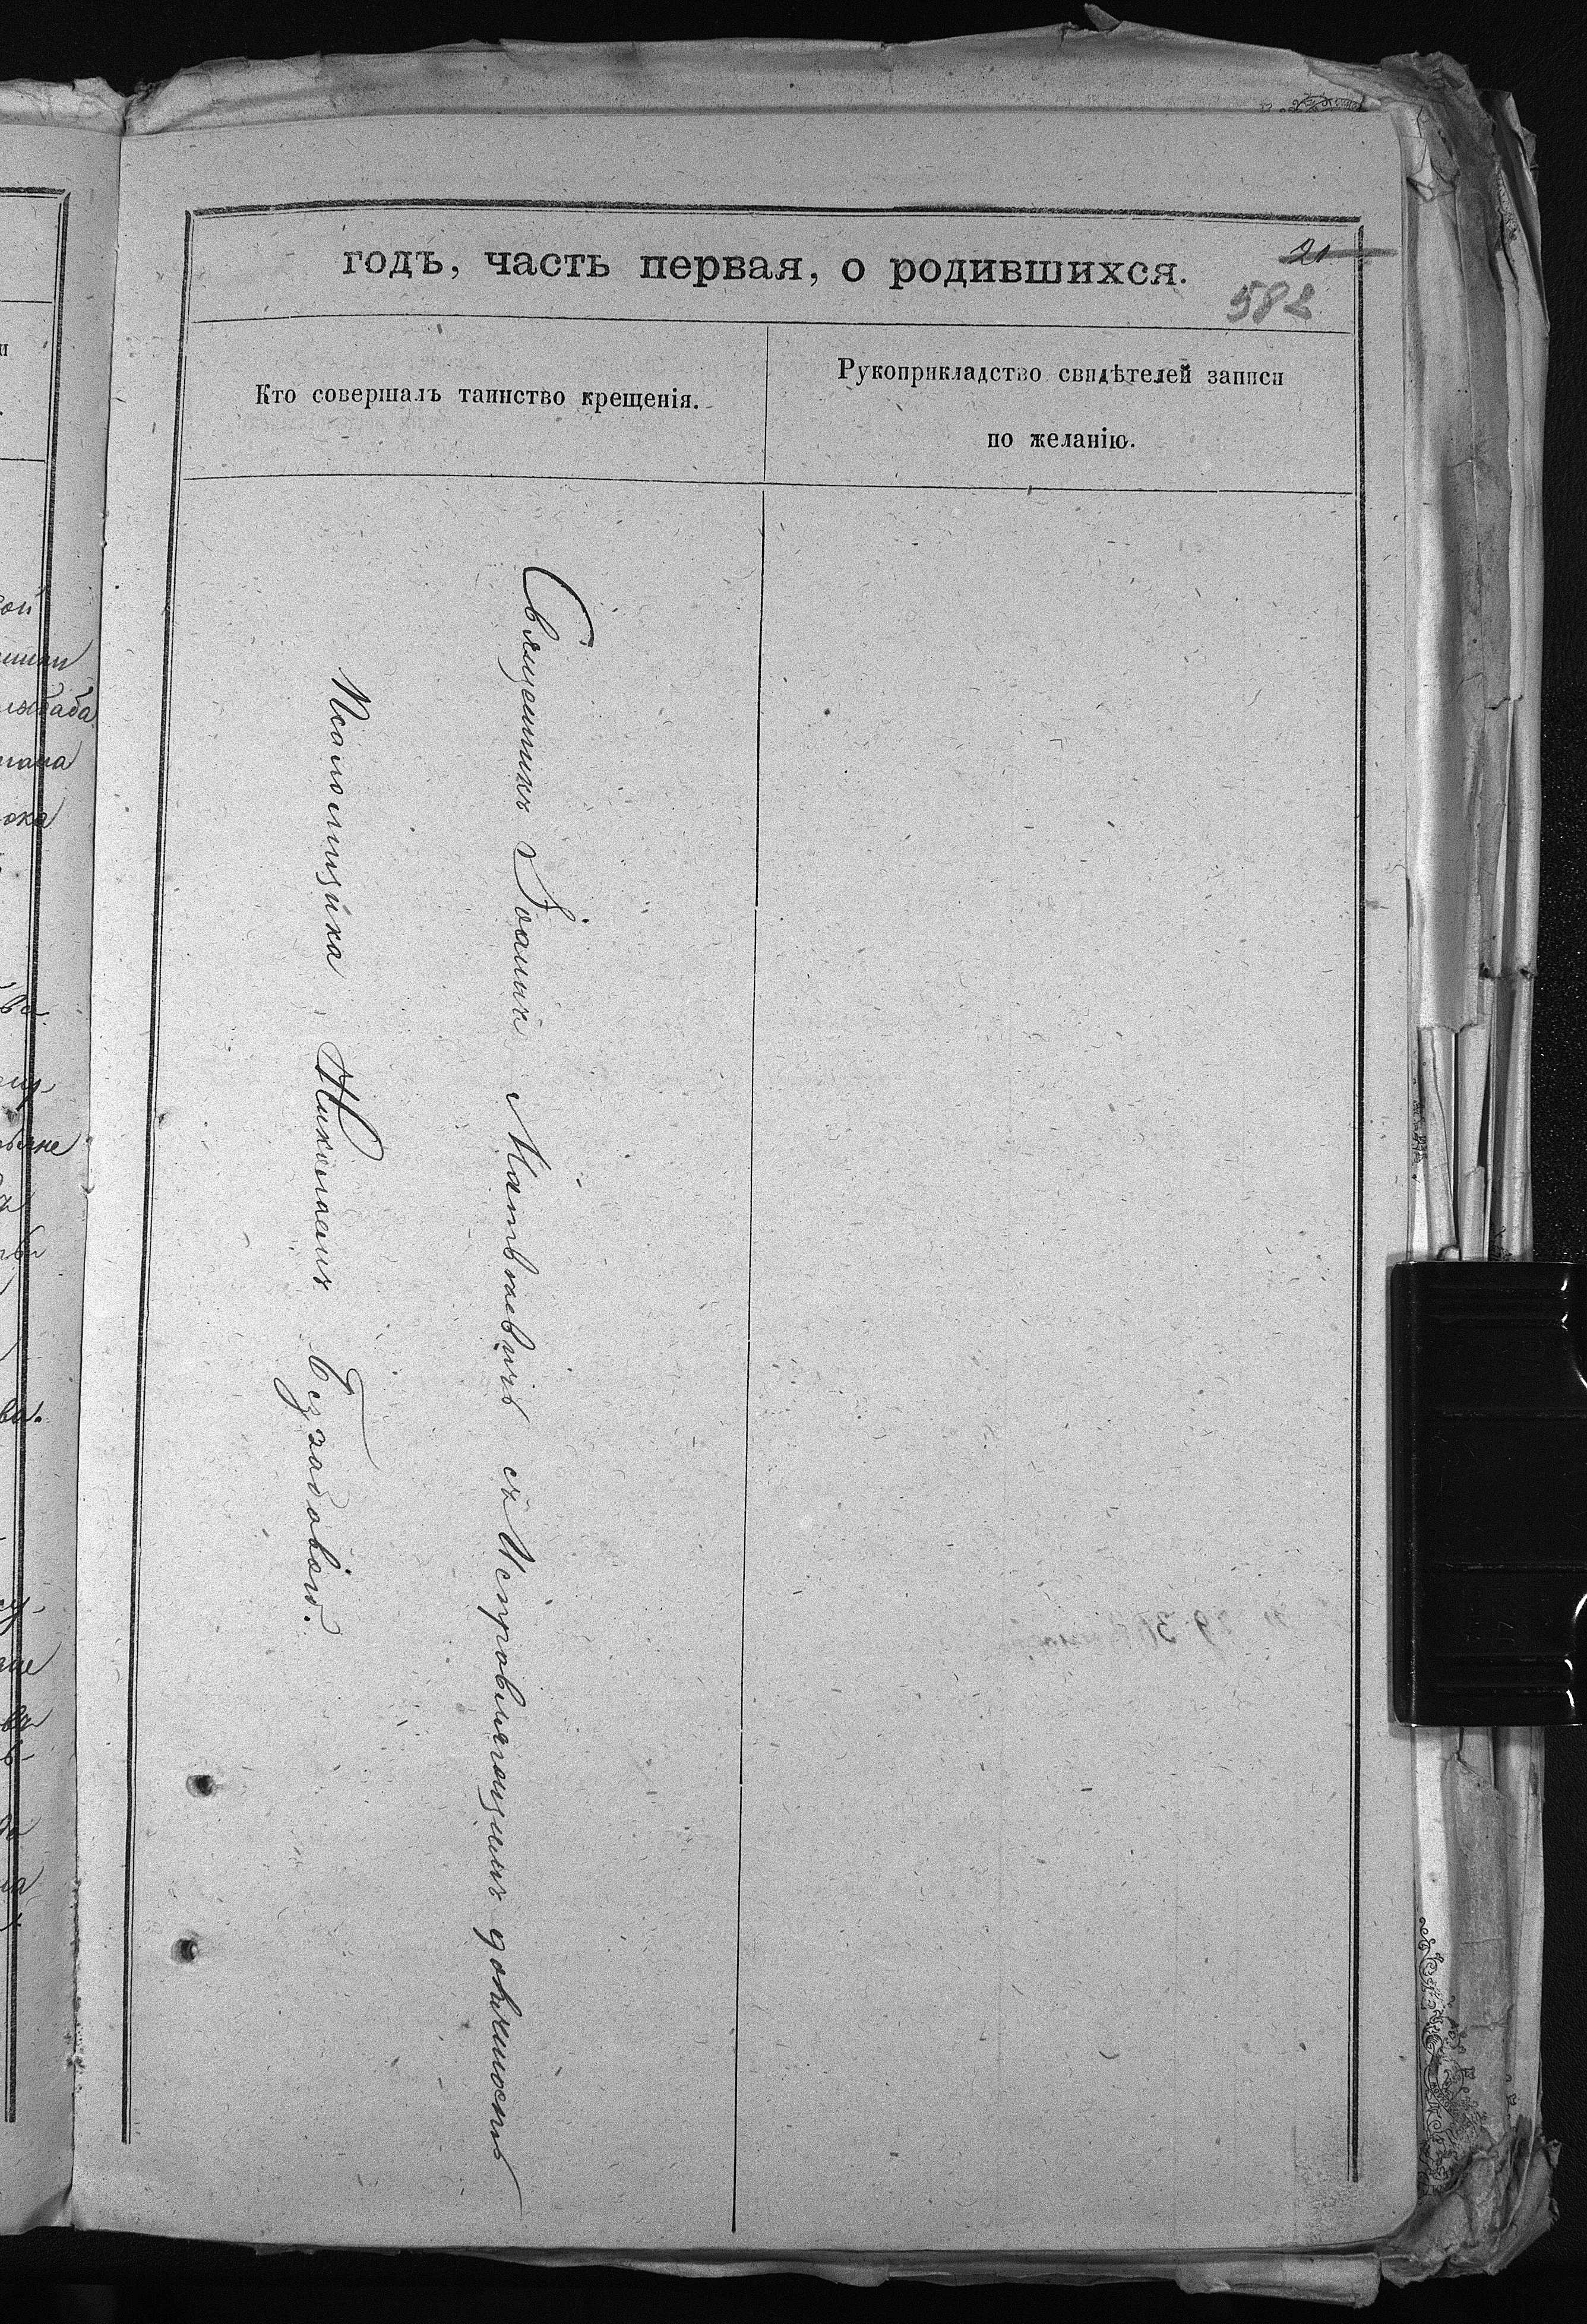 годъ, часть первая, о родившихся.
21
582
Кто совершалъ таинство крещенія.
Рукоприкладство свидѣтелей записи
по желанію.
Священникъ Іоаннъ Матвѣевичъ съ Исправляющимъ должность
Псаломщика Николаемъ